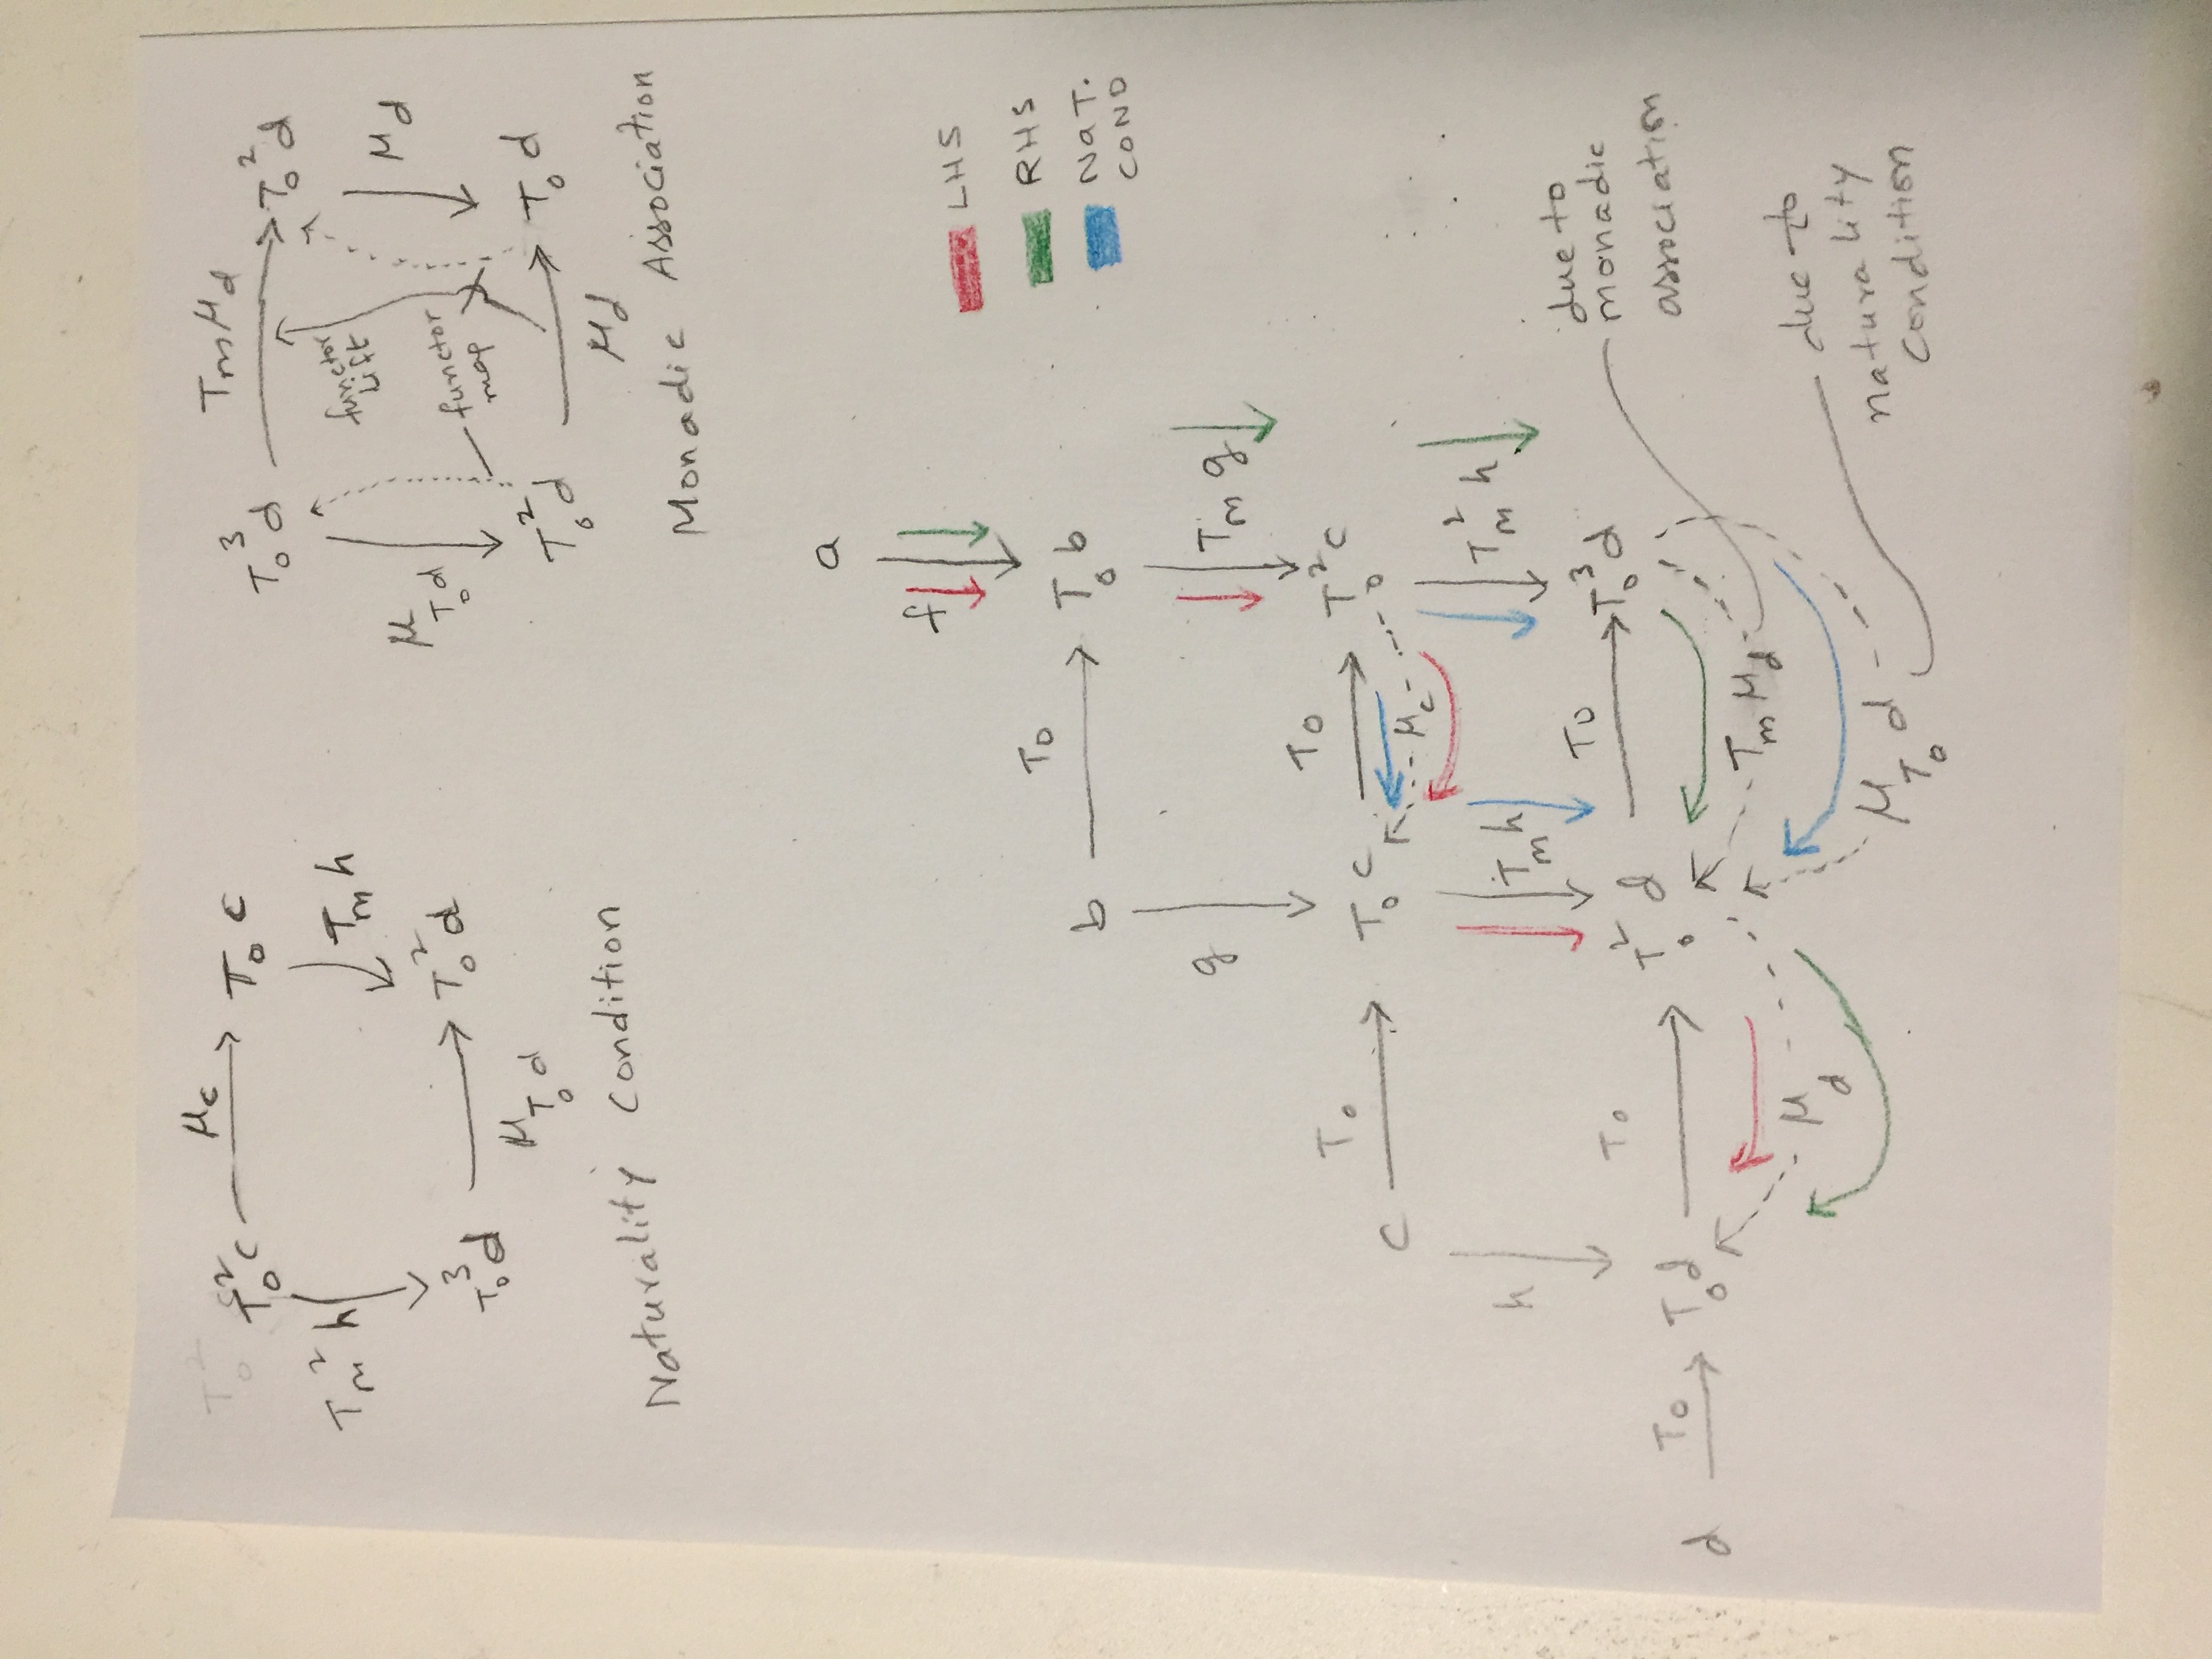 μ_c
T_o^2 c T_o c
T_m^2 h T_m h
T_o^3 d T_o^2 d
μ_{T_o d}
Naturality Condition
T_m μ_d
T_o^3 d T_o^2 d
functor
lift
μ_{T_o d} μ_d
functor
map
T_o^2 d T_o d
μ_d
Monadic Association
a
f
LHS
RHS
NAT.
COND
T_o
b T_o b
g T_m g
T_o T_o
c T_o c T_o^2 c
μ_c
h T_m h T_m^2 h
T_o T_o
d T_o T_o d T_o^2 d T_o^3 d
due to
monadic
association
μ_d T_m μ_d
μ_{T_o} d
due to
naturality
condition